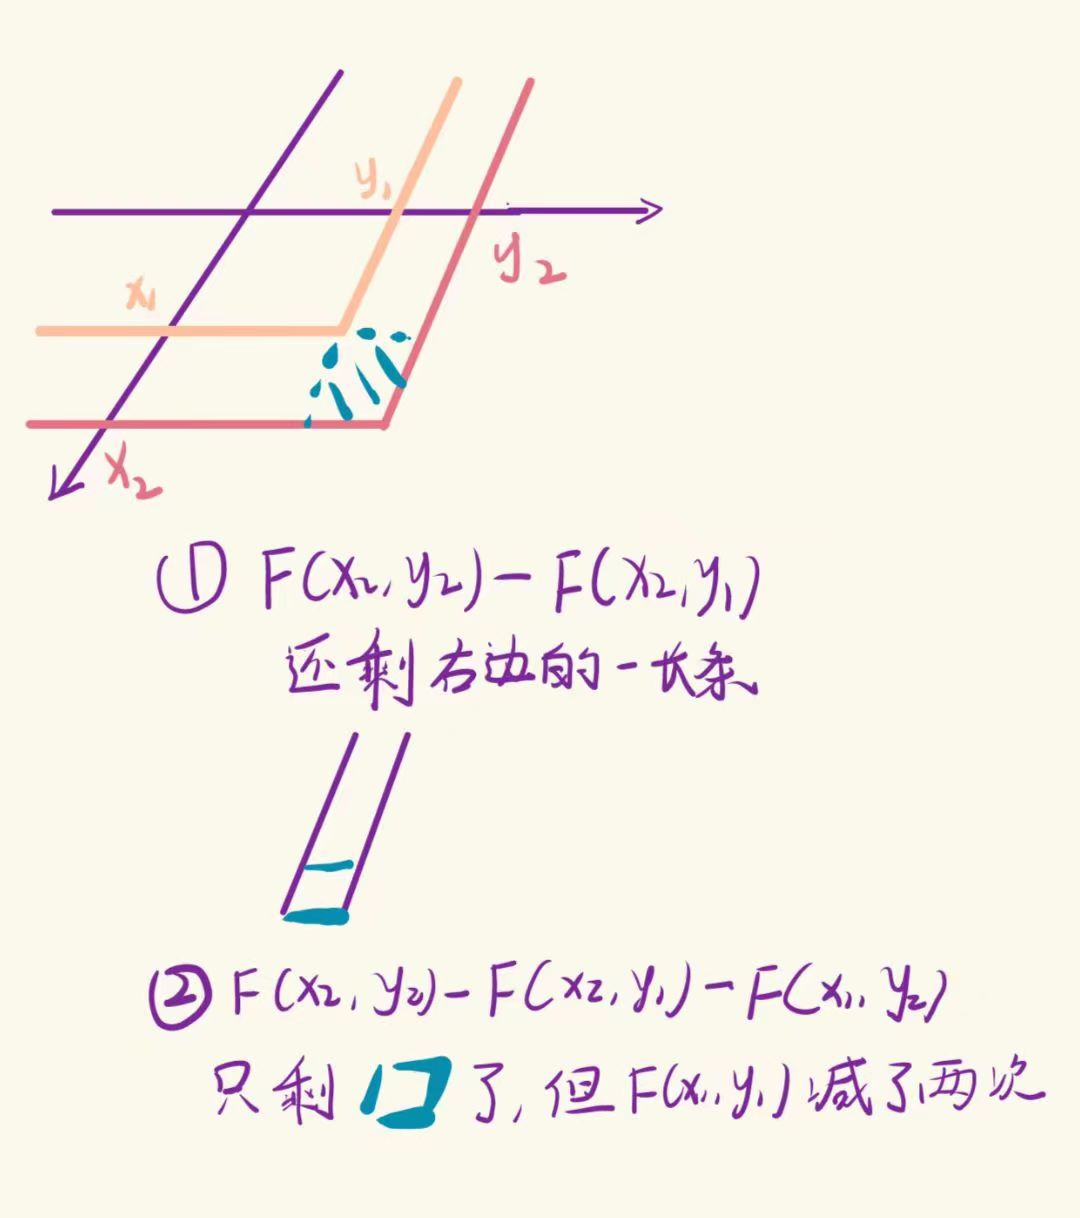 y₁
y₂
x₁
x₂
① F(x₂, y₂) - F(x₂, y₁)
还剩右边的一长条
② F(x₂, y₂) - F(x₂, y₁) - F(x₁, y₂)
只剩 了, 但 F(x₁, y₁) 减了两次